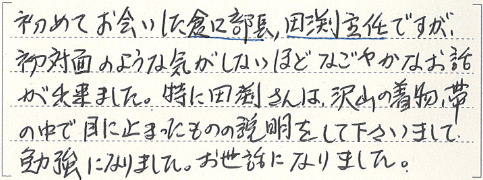 初めてお会いした倉口部長,田渕主任ですが、
初対面のような気がしないほどなごやかなお話
が出来ました。特に田渕さんは、沢山の着物、帯
の中で目に止まったものの説明をして下さいまして
勉強になりました。お世話になりました。